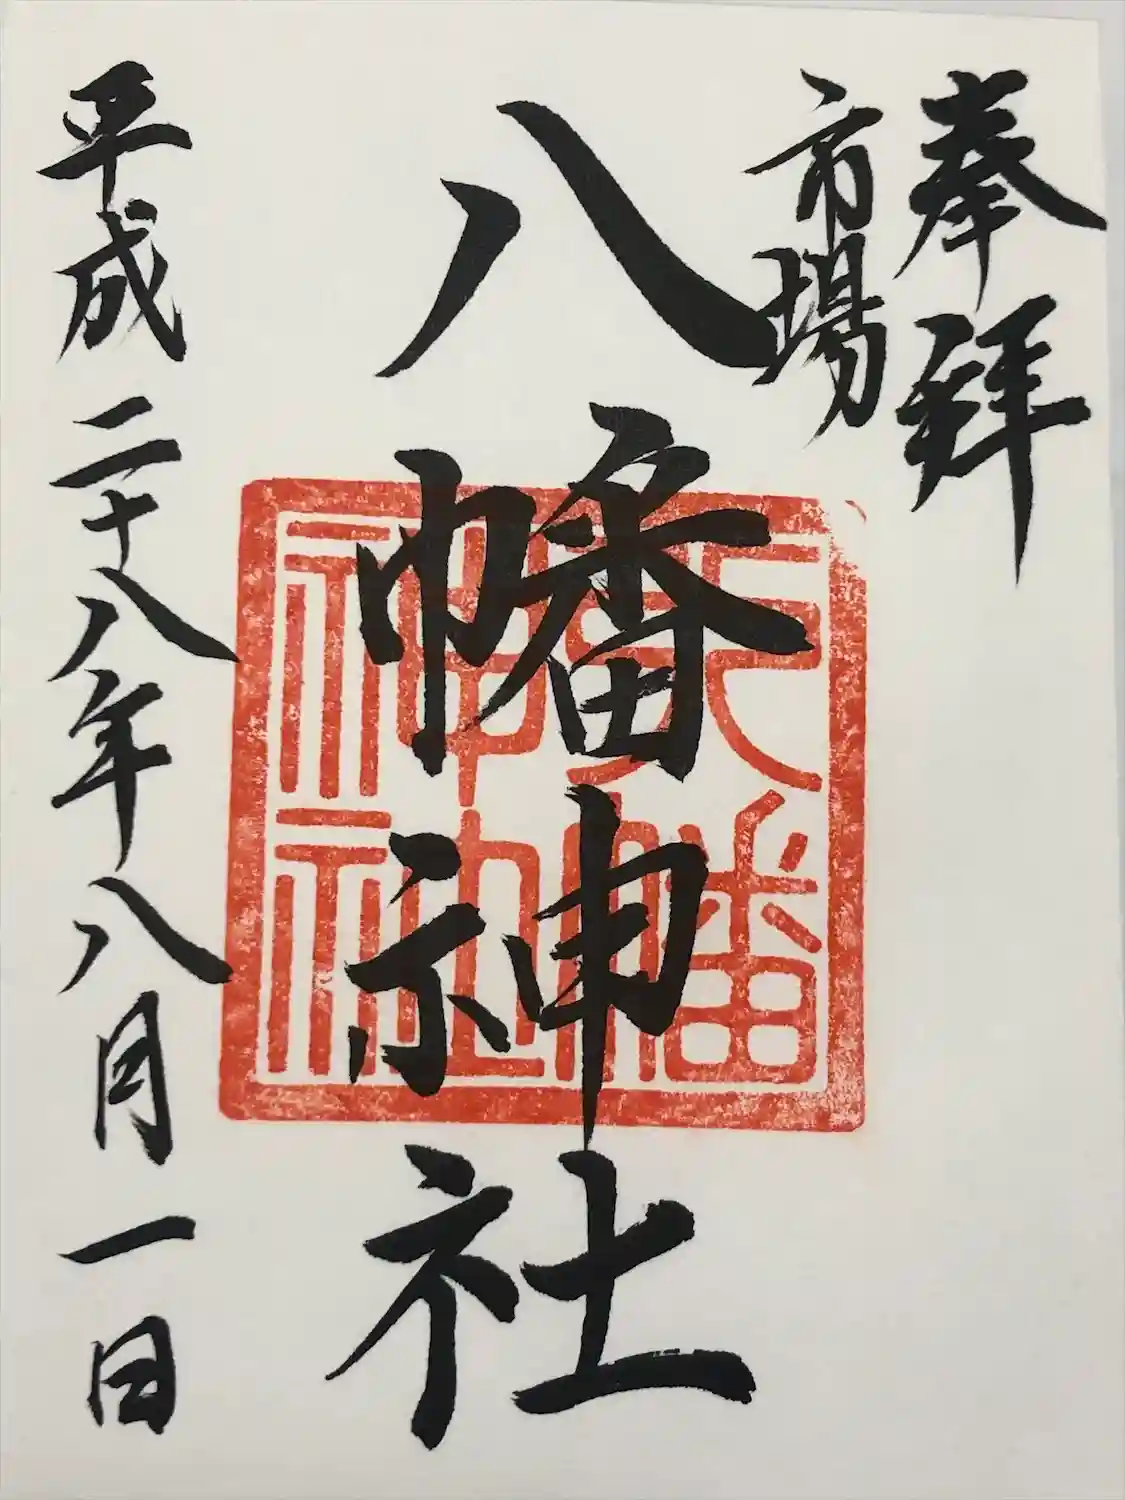 奉拜
市場
八幡神社
平成二十八年八月一日
八幡
神社